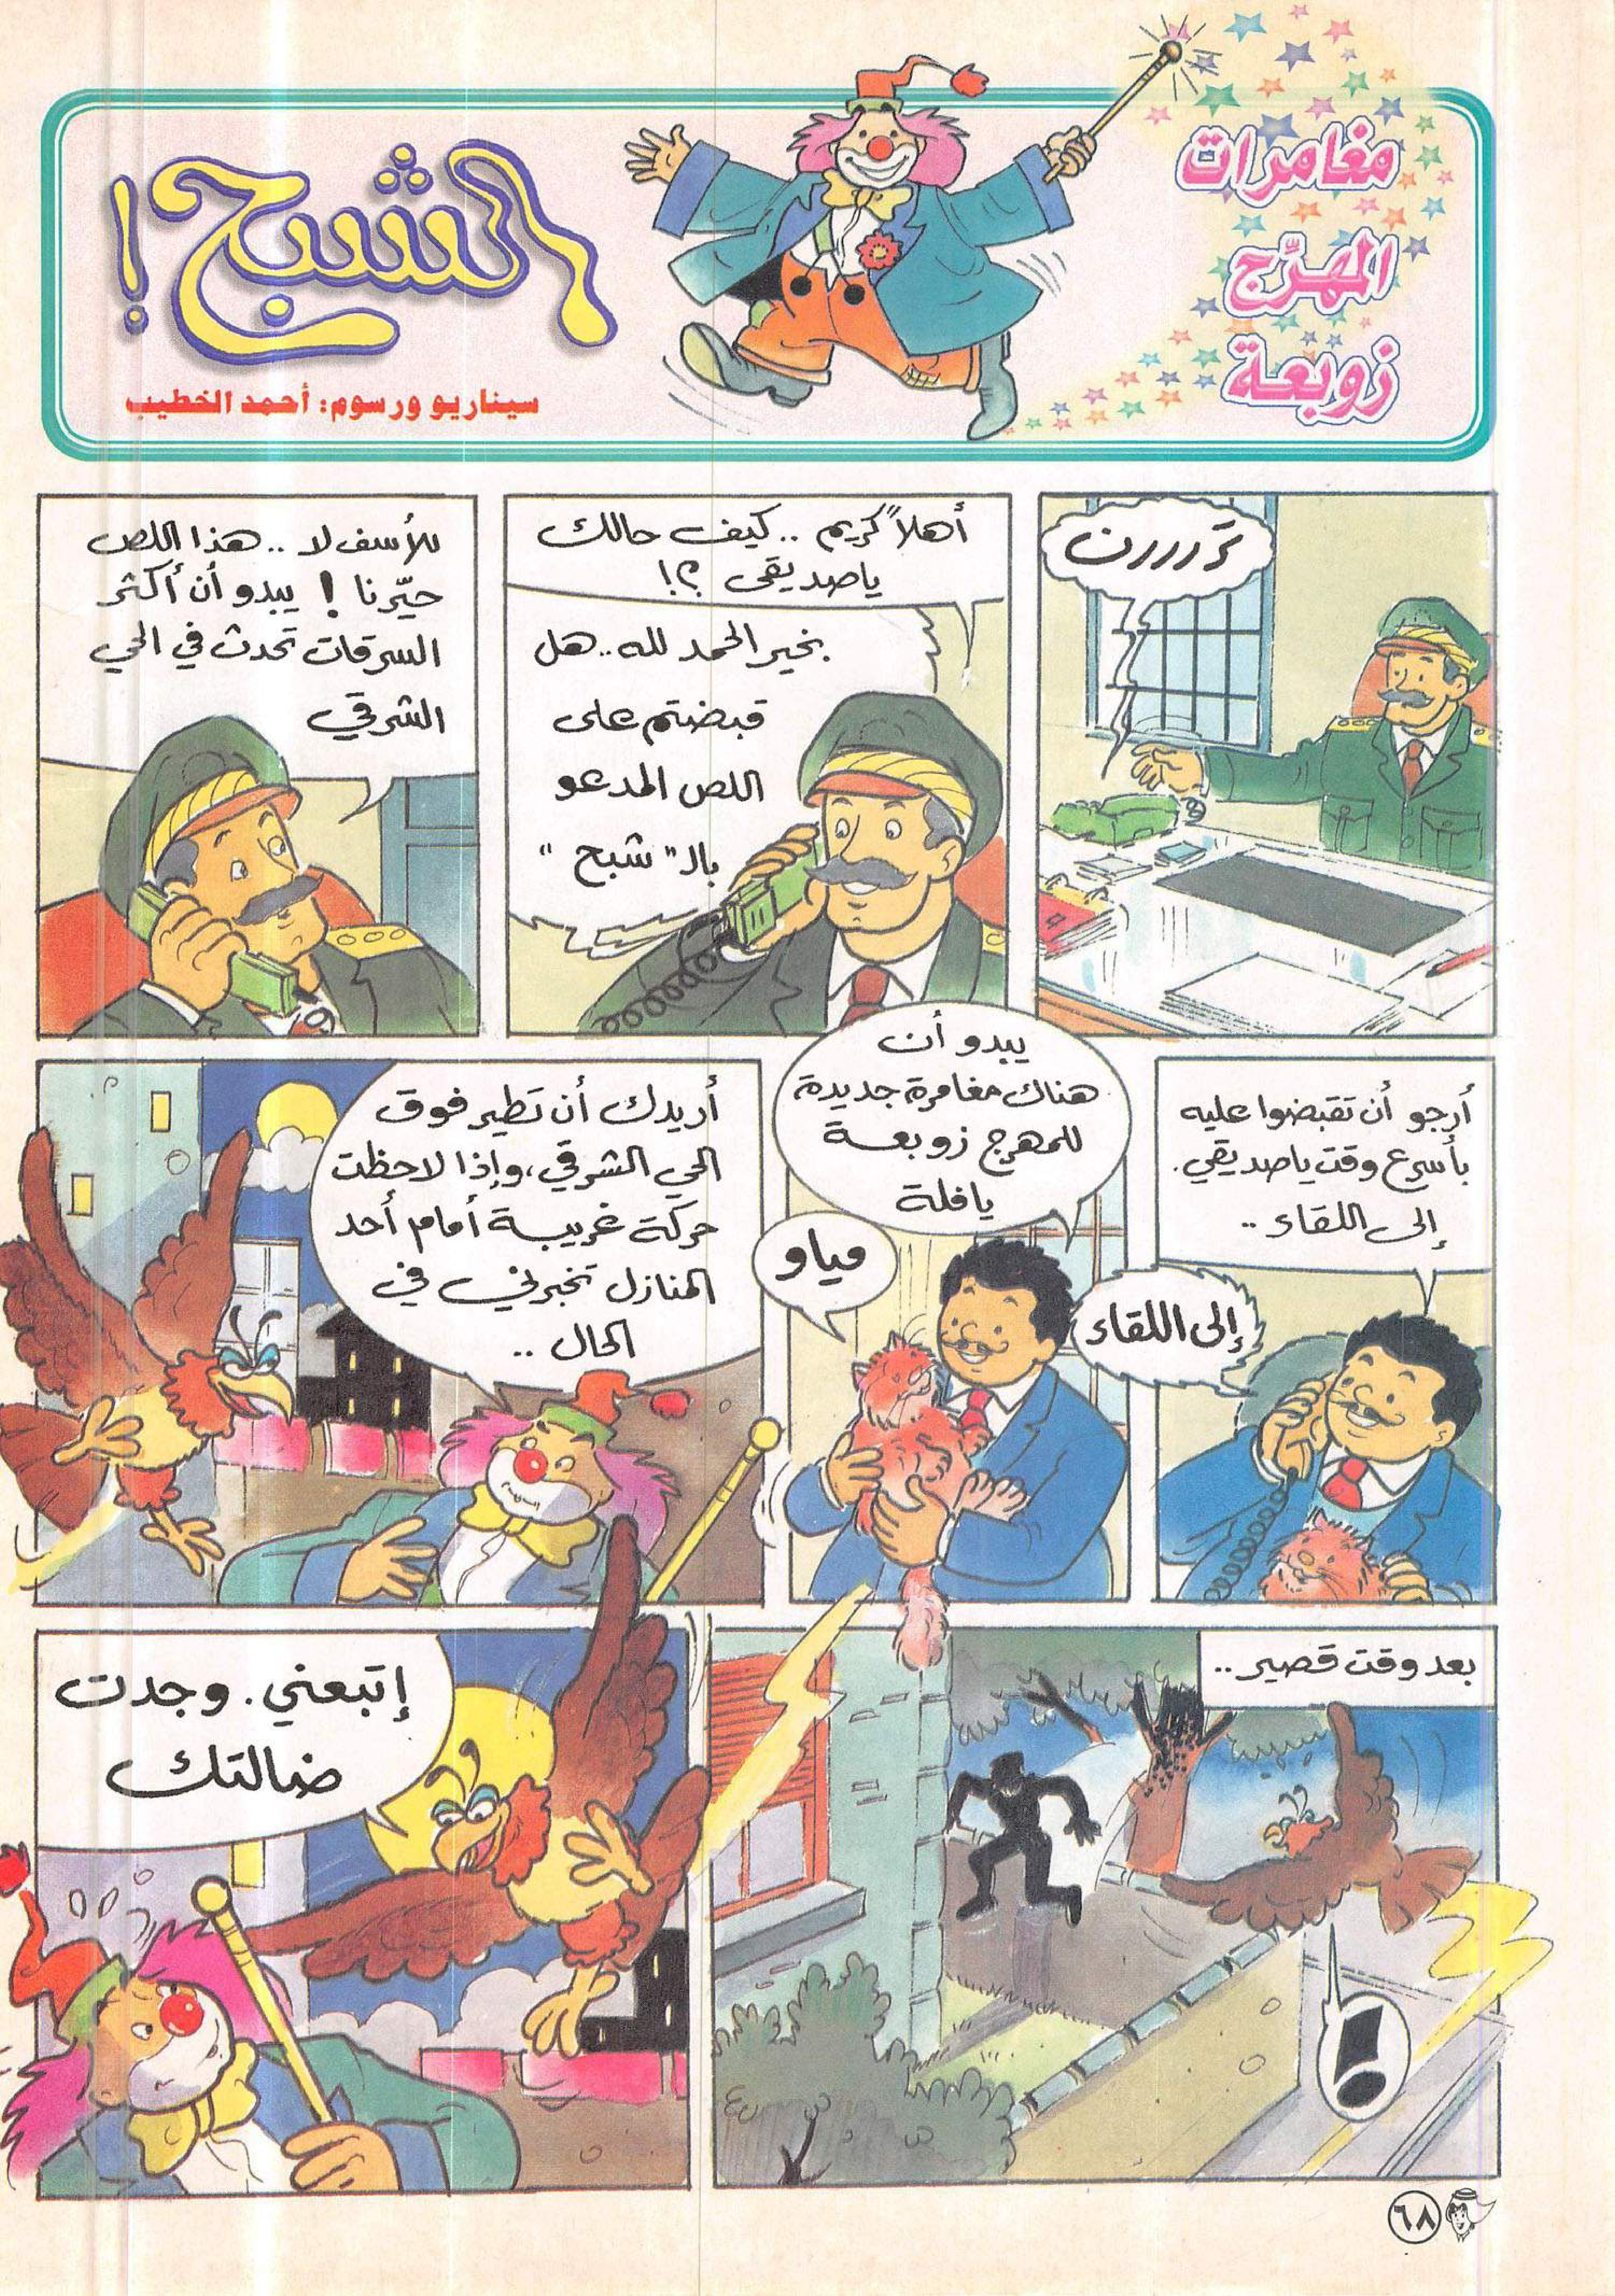 مغامرات
المهرّج
زوبعة
الشبح!
سيناريو ورسوم: أحمد الخطيب
تررررن
أهلاً كريم .. كيف حالك
ياصديقي ؟!
بخير الحمد لله .. هل
قبضتم على
اللص المدعو
بالـ " شبح "
للأسف لا .. هذا اللص
حيّرنا ! يبدو أن أكثر
السرقات تحدث في الحي
الشرقي
أرجو أن تقبضوا عليه
بأسرع وقت ياصديقي.
إلى اللقاء ..
إلى اللقاء
يبدو أن
هناك مغامرة جديدة
للمهرج زوبعة
يافلة
مياو
أريدك أن تطير فوق
الحي الشرقي، وإذا لاحظت
حركة غريبة أمام أحد
المنازل تخبرني في
الحال ..
بعد وقت قصير ..
!
إتبعني . وجدت
ضالتك
٦٨